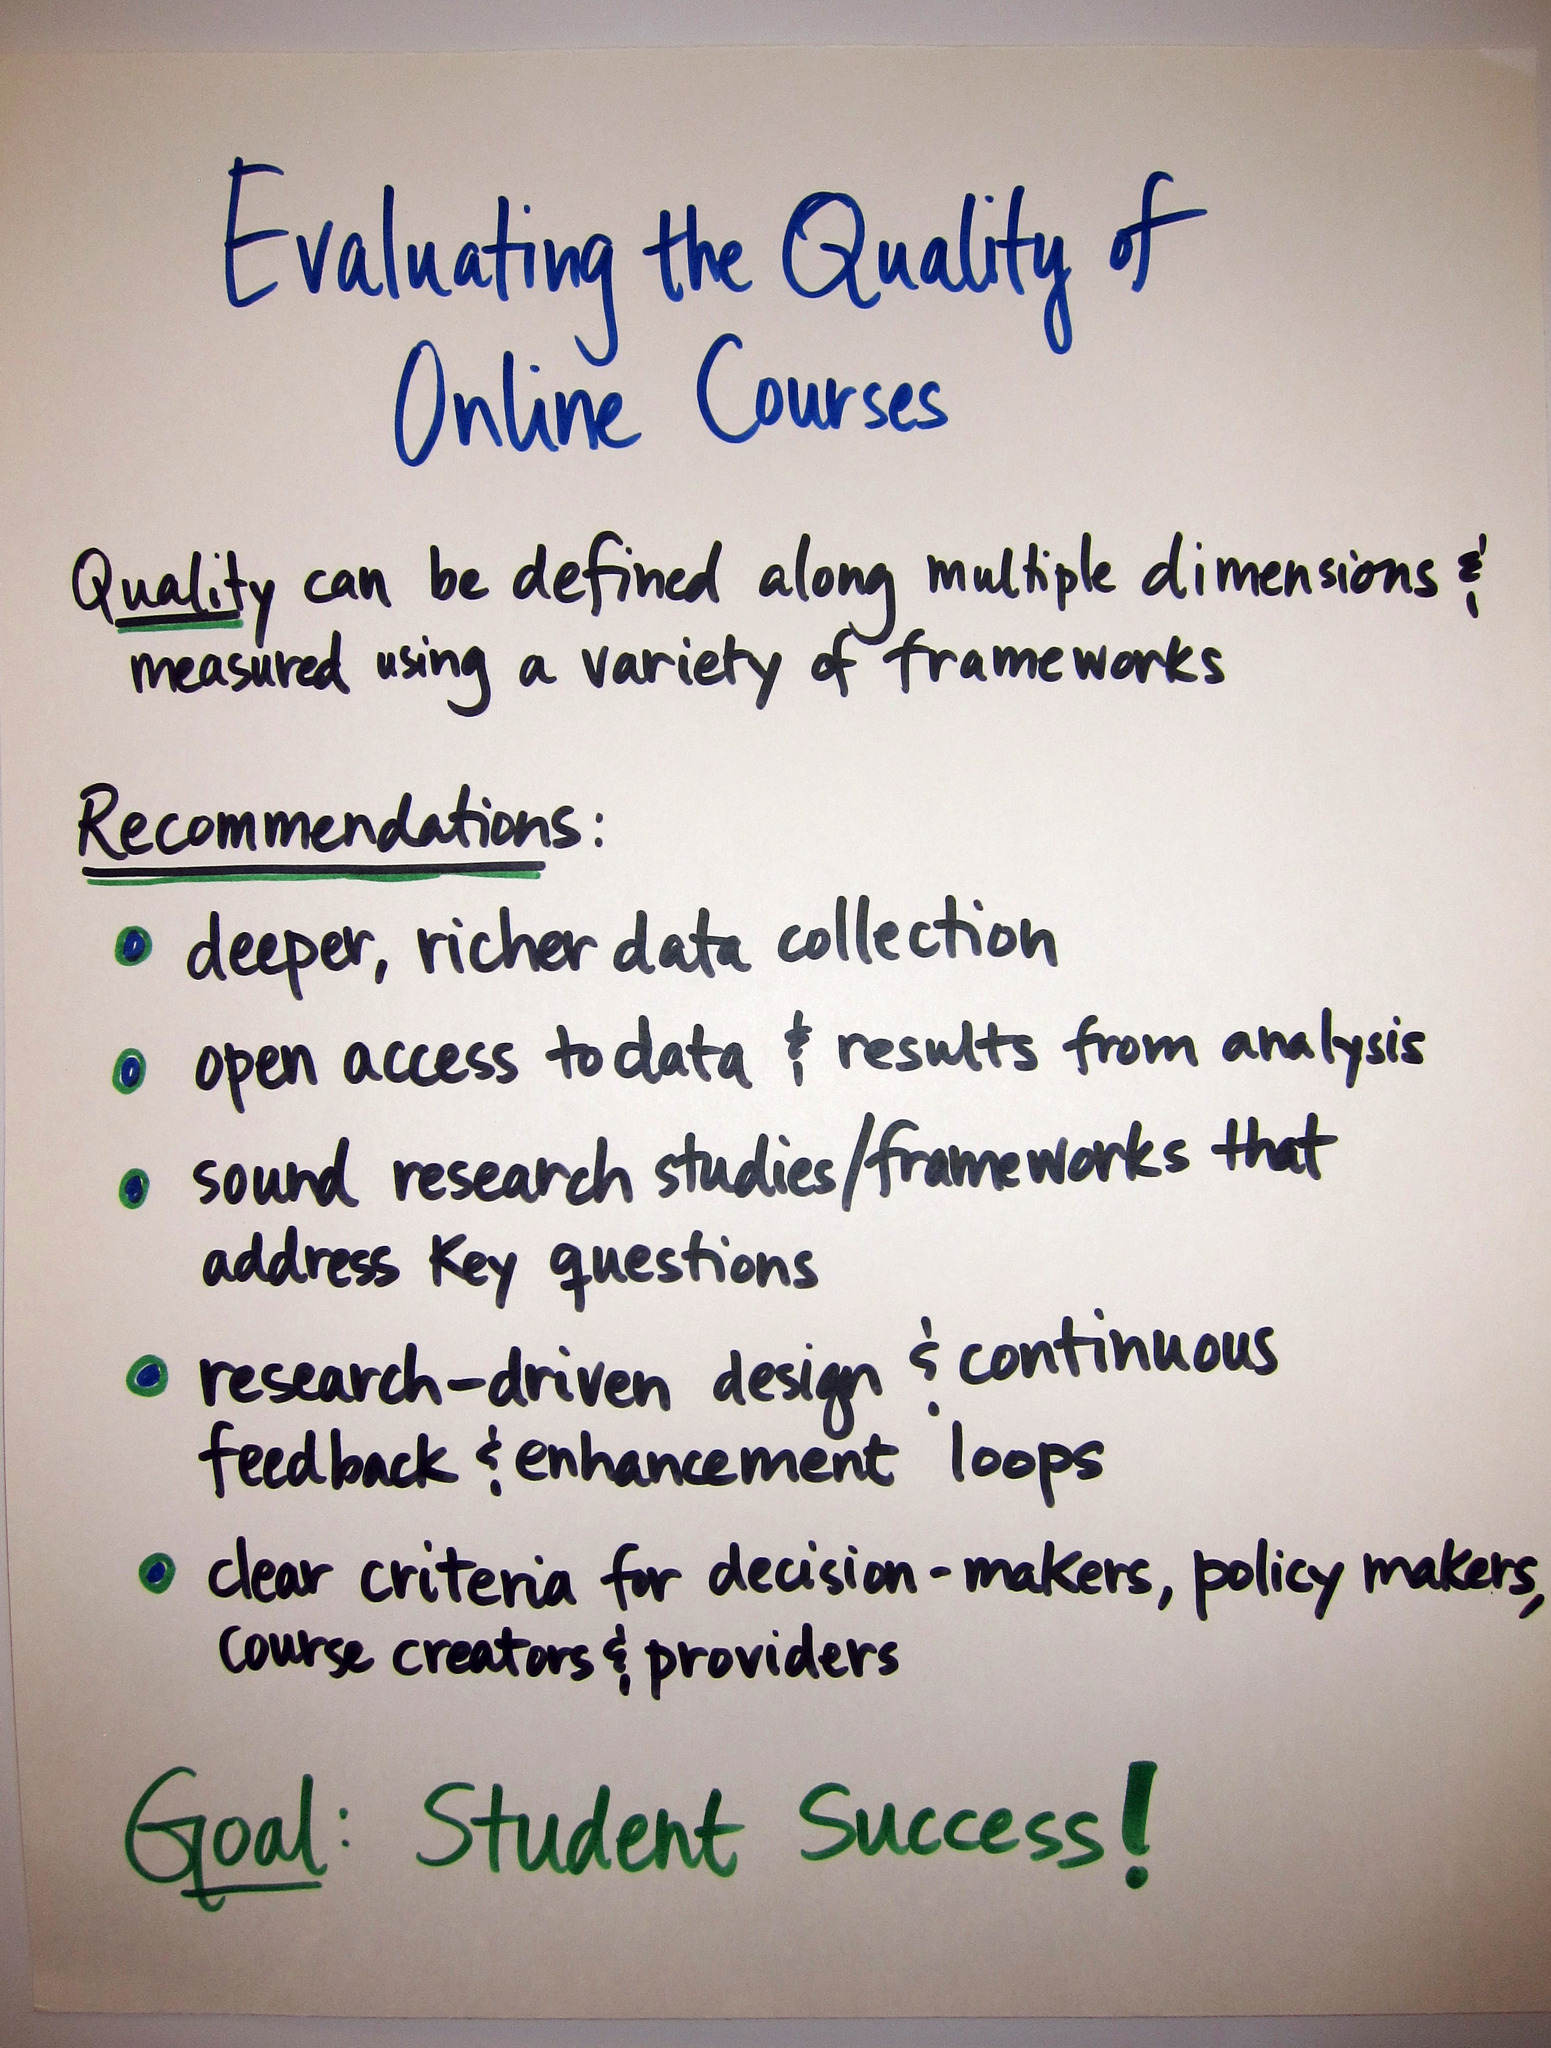 Evaluating the Quality of
Online Courses
Quality can be defined along multiple dimensions &
measured using a variety of frameworks
Recommendations:
• deeper, richer data collection
• open access to data & results from analysis
• sound research studies/frameworks that
address key questions
• research-driven design & continuous
feedback & enhancement loops
• clear criteria for decision-makers, policy makers,
course creators & providers
Goal: Student Success!